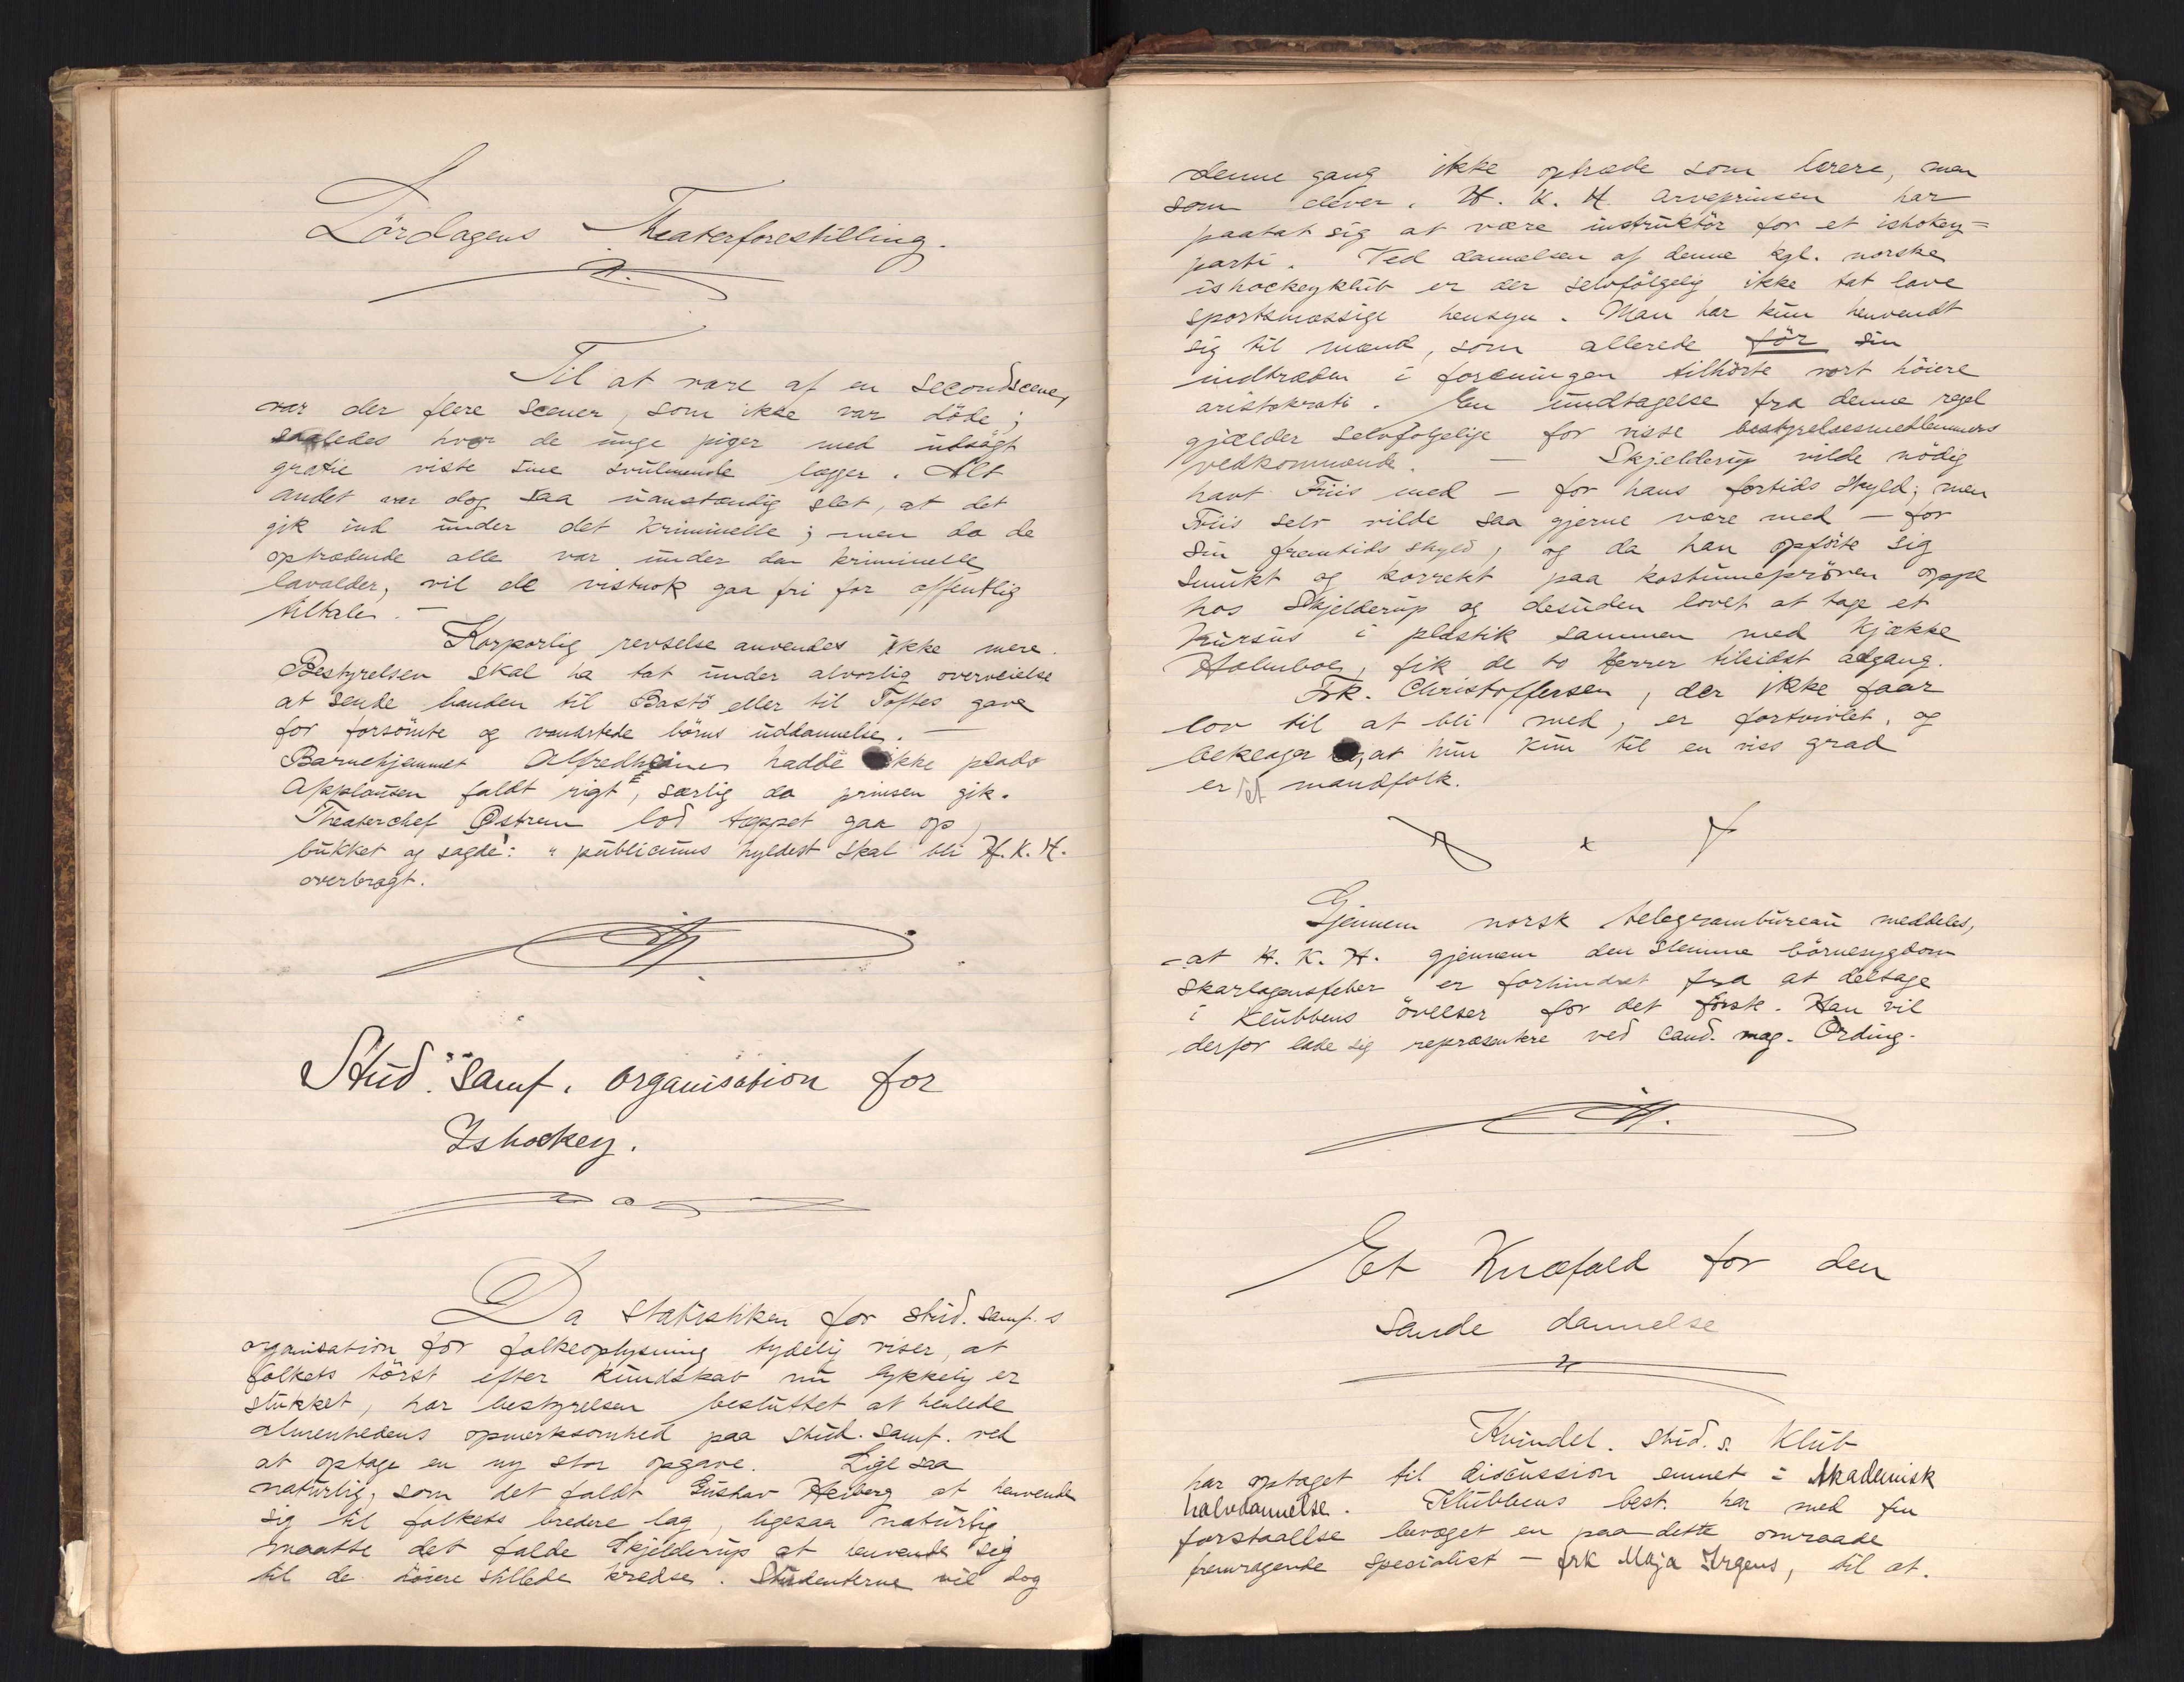 Lördagens Theaterforestilling.
Til at være af en secondscene,
var der flere scener, som ikke var döde;
saaledes hvor de unge piger med udsøgt
gratie viste sine svulmende lægger. Alt
andet var dog saa uanstændig slet, at det
gik ind under det kriminelle; men da de
optrædende alle var under den kriminelle
lavalder, vil de vistnok gaa fri for offentlig
tiltale. —
Korporlig revselse anvendes ikke mere.
Bestyrelsen skal ha tat under alvorlig overveielse
at sende banden til Bastö eller til Toftes gave
for forsömte og vanartede börns uddannelse. —
Barnehjemmet Alfredheim hadde ikke plads
Applausen faldt rigt, særlig da prinsen gik.
Theaterchef Østrem lod tæppet gaa op,
bukket og sagde: " publicums hyldest skal bli H. K. H.
overbragt.
Stud. Samf. organisation for
Ishockey.
Da statistiken for stud. samf.s
organisation for folkeoplysning tydelig viser, at
folkets törst efter kundskab nu lykkelig er
slukket, har bestyrelsen besluttet at henlede
almenhedens opmerksomhed paa stud. samf. ved
at optage en ny stor opgave. Lige saa
naturlig, som det faldt Gustav Heiberg at henvende
sig til folkets bredere lag, ligesaa naturlig
maatte det falde Skjelderup at henvende sig
til de höiere stillede kredse. Studenterne vil dog
denne gang ikke optræde som lærere, men
som elever. H. K. H. arveprinsen har
paatat sig at være instruktör for et ishokey=
parti. Ved dannelsen af denne kgl. norske
ishockeyklub er der selvfölgelig ikke tat lave
sportsmæssige hensyn. Man har kun henvendt
sig til mænd, som allerede för sin
indtræden i foreningen tilhörte vort höiere
aristokrati. En undtagelse fra denne regel
gjælder selvfolgelige for visse bestyrelsesmedlemmers
vedkommende. — Skjelderup vilde nödig
havt Friis med — for hans fortids skyld; men
Friis selv vilde saa gjerne være med — for
sin fremtids skyld, og da han opförte sig
smukt og korrekt paa kostumepröven oppe
hos Skjelderup og desuden lovet at tage et
kursus i plastik sammen med kjække
Holmboe, fik de to Herrer tilsidst adgang.
Frk. Christoffersen, der ikke faar
lov til at bli med, er fortvivlet, og
beklager at hun kun til en viss grad
er et mandfolk.
Gjennem norsk telegrambureau meddeles,
- at H. K. H. gjennem den slemme börnesygdom
skarlagensfeber er forhindret fra at deltage
i klubbens övelser for det förste. Han vil
derfor lade sig repræsentere ved cand. mag. Ording.
Et Knæfald for den
sande dannelse
Kvindel. stud.s. Klub
har optaget til discussion emnet: Akademisk
halvdannelse. Klubbens best. har med fin
forstaallse bevæget en paa dette omraade
fremragende specialist — frk Maja Irgens, til at.